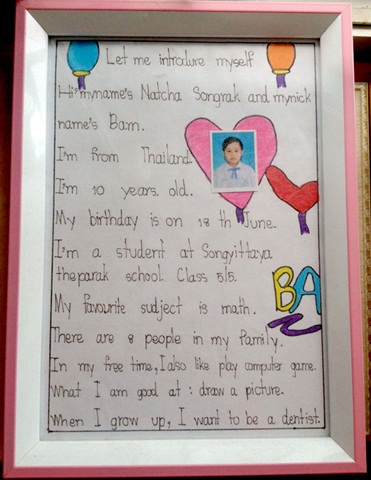 Let me introdure myself
Hi'myname's Natcha Songrak and mynick
name's Bam.
I'm from Thailand.
I'm 10 years old.
My birthday is on 18 th June.
I'm a student at Songyittaya
theparak school. Class 5/5.
My favourite sudject is math.
There are 8 people in my Pamily.
In my free time, I also like play computer game.
What I am good at : draw a picture.
When I grow up, I want to be a dentist.
BA